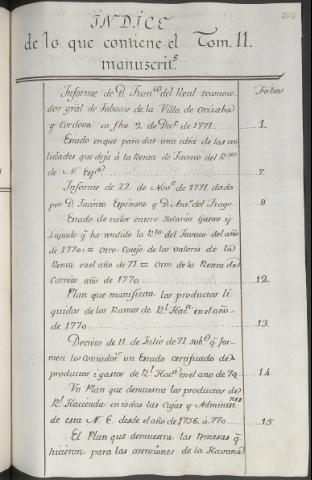 INDICE
de lo que contiene el Tom. 11.
manuscrit.s
Folios
Informe de D. Fran.co del Real reconoce
dor gral de tabaco de la Villa de Orizaba
y Cordova su fha 2 de Dic.e de 1771. 1.
Estado en que para dar una idea de las uti
lidades que deja á la Renta de Tavaco del R.no
de N. Esp.a 7.
Informe de 22 de Nov.e de 1771 dado
por D. Jacinto Espinosa y D. Ant.o del Frago. 8.
Estado de valor entero Salarios Gastos y
Liquido q.e ha rendido la R.ta del Tavaco del año
de 1770: = Otro Cotejo de los valores de la
Renta en el año de 71 = Otro de la Renta de
Correos año de 1770 12.
Plan que manifiesta los productos li
quidos de los Ramos de R.l Hac.a en el año
de 1770 13.
Decreto de 11 de Julio de 71 sob.e q.e for
men los contador.s un Estado certificado de
productos i gastos de R.l Hac.a en el ano de 70 14
Vn Plan que demuestra los productos de
R.l Hacienda en todas las Cajas y Administ.nes
de esta N. E. desde el año de 1756. á 770 15.
El Plan que demuestra las remesas q.e
hicieron para las atenciones de la Havana